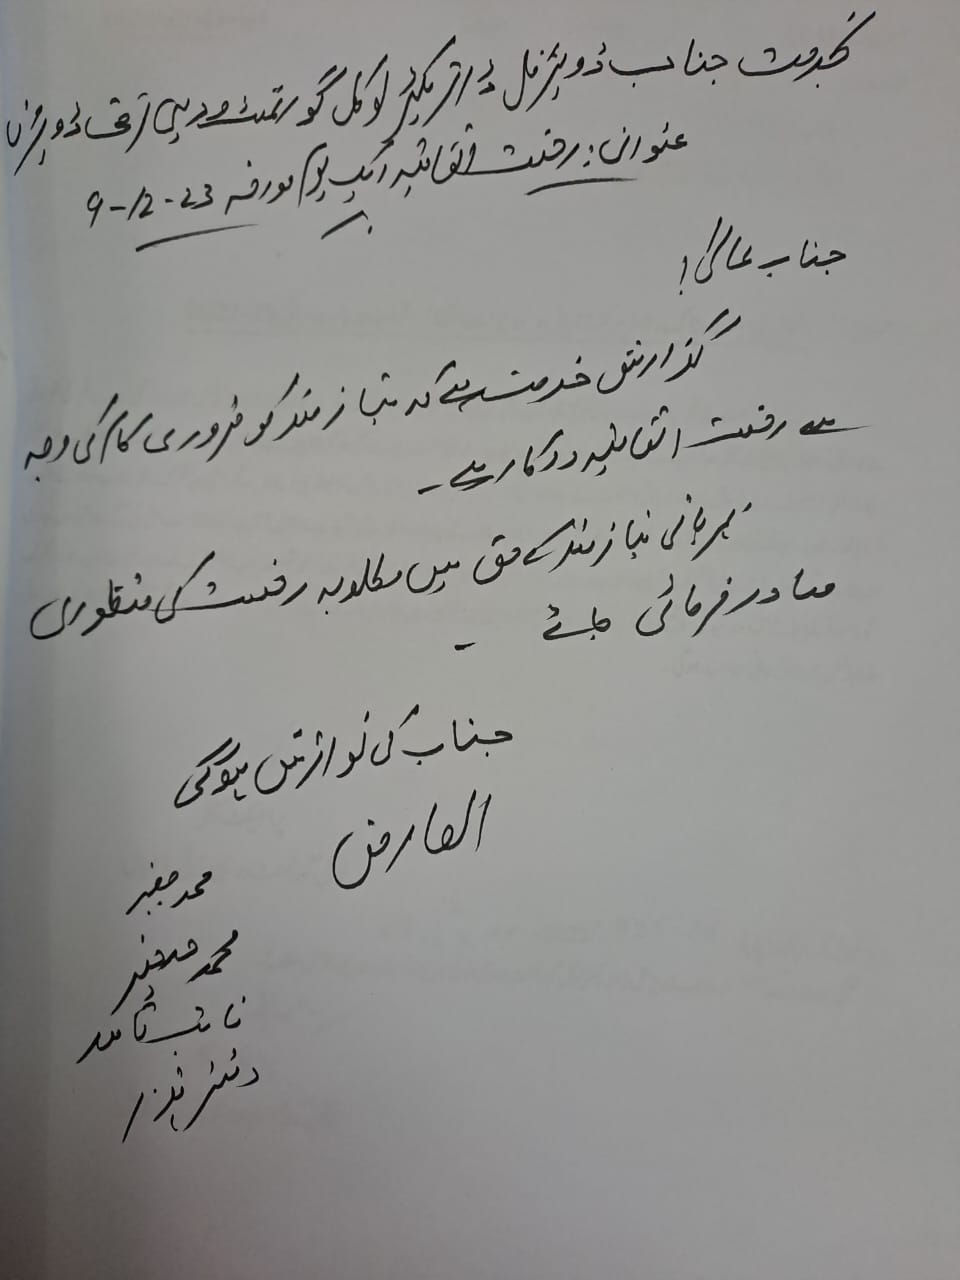 بخدمت جناب ڈویژنل ڈائریکٹر لوکل گورنمنٹ و دیہی ترقی ڈویژن
عنوان: رخصت اتفاقیہ ایک یوم مورخہ 23-12-9
جناب عالی!
گذارش خدمت ہے کہ نیاز مند کو ضروری کام کی وجہ
سے رخصت اتفاقیہ درکار ہے۔
مہربانی نیاز مند کے حق میں مطلوبہ رخصت کی منظوری
صادر فرمائی جائے ۔
جناب کی نوازش ہوگی
العارض
محمد صغیر
محمد صغیر
نائب قاصد
دفتر ہذا